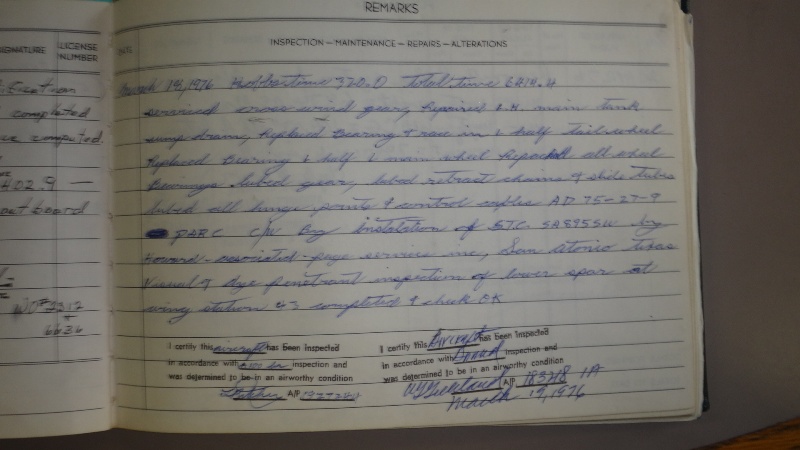 REMARKS
SIGNATURE
LICENSE NUMBER
DATE
INSPECTION—MAINTENANCE—REPAIRS—ALTERATIONS
completed
completed.
402.9 —
board
March 19, 1976 time 320.0 Total time 6414.4
serviced cross wind gear, Repaired main tank
sump drain, Replaced Bearing & race in half tail wheel
Replaced Bearing & half main wheel Repacked all wheel
Bearings lubed gear, lubed retract chains & slide tubes
lubed all hinge points & control cables AD 75-27-9
PARC C/W By Instalation of S.T.C. SA895SW by
Howard - associated - page services inc, San Atonio Texas
Visual & dye penetrant inspection of lower spar at
wing station completed & check OK
I certify this aircraft has been inspected
in accordance with inspection and
was determined to be in an airworthy condition
A/P
I certify this Aircraft has been inspected
in accordance with Annual inspection and
was determined to be in an airworthy condition
A/P IA
March 19, 1976